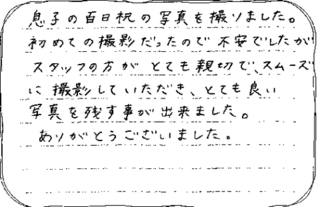 息子の百日祝の写真を撮りました。
初めての撮影だったので不安でしたが
スタッフの方がとても親切で、スムーズ
に撮影していただき、とても良い
写真を残す事が出来ました。
ありがとうございました。